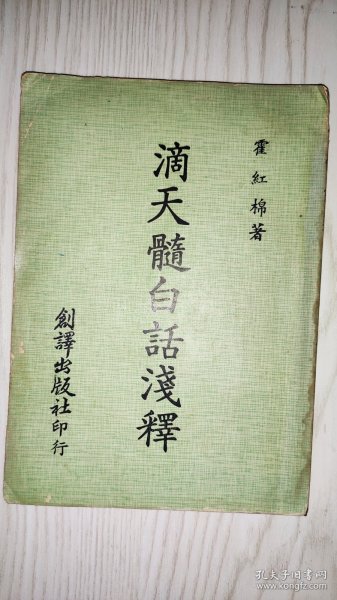 霍紅棉著
滴天髓白話淺釋
創譯出版社印行
孔夫子旧书网
www.kongfz.com